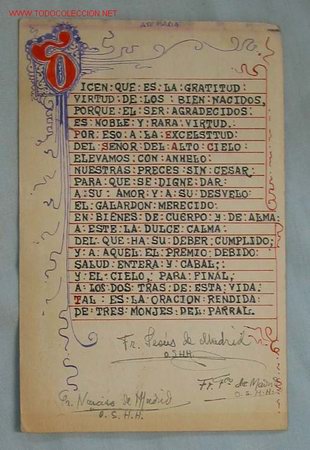 WWW.TODOCOLECCION.NET
AVE MARIA
DICEN QUE ES LA GRATITUD
VIRTUD DE LOS BIEN NACIDOS,
PORQUE EL SER AGRADECIDOS
ES NOBLE Y RARA VIRTUD.
POR ESO A LA EXCELSTTUD
DEL SEÑOR DEL ALTO CIELO
ELEVAMOS CON ANHELO
NUESTRAS PRECES SIN CESAR,
PARA QUE SE DIGNE DAR
A SU AMOR Y A SU DESVELO
EL GALARDON MERECIDO
EN BIENES DE CUERPO Y DE ALMA:
A ESTE LA DULCE CALMA
DEL QUE HA SU DEBER CUMPLIDO;
Y A AQUEL EL PREMIO DEBIDO
SALUD ENTERA Y CABAL;
Y EL CIELO, PARA FINAL,
A LOS DOS TRAS DE ESTA VIDA.
TAL ES LA ORACION RENDIDA
DE TRES MONJES DEL PARRAL.
Fr. Jesús de Madrid
O.S.H.
Fr. Fco de Madrid
O.S.H.
Fr. Narciso de Madrid
O.S.H.H.